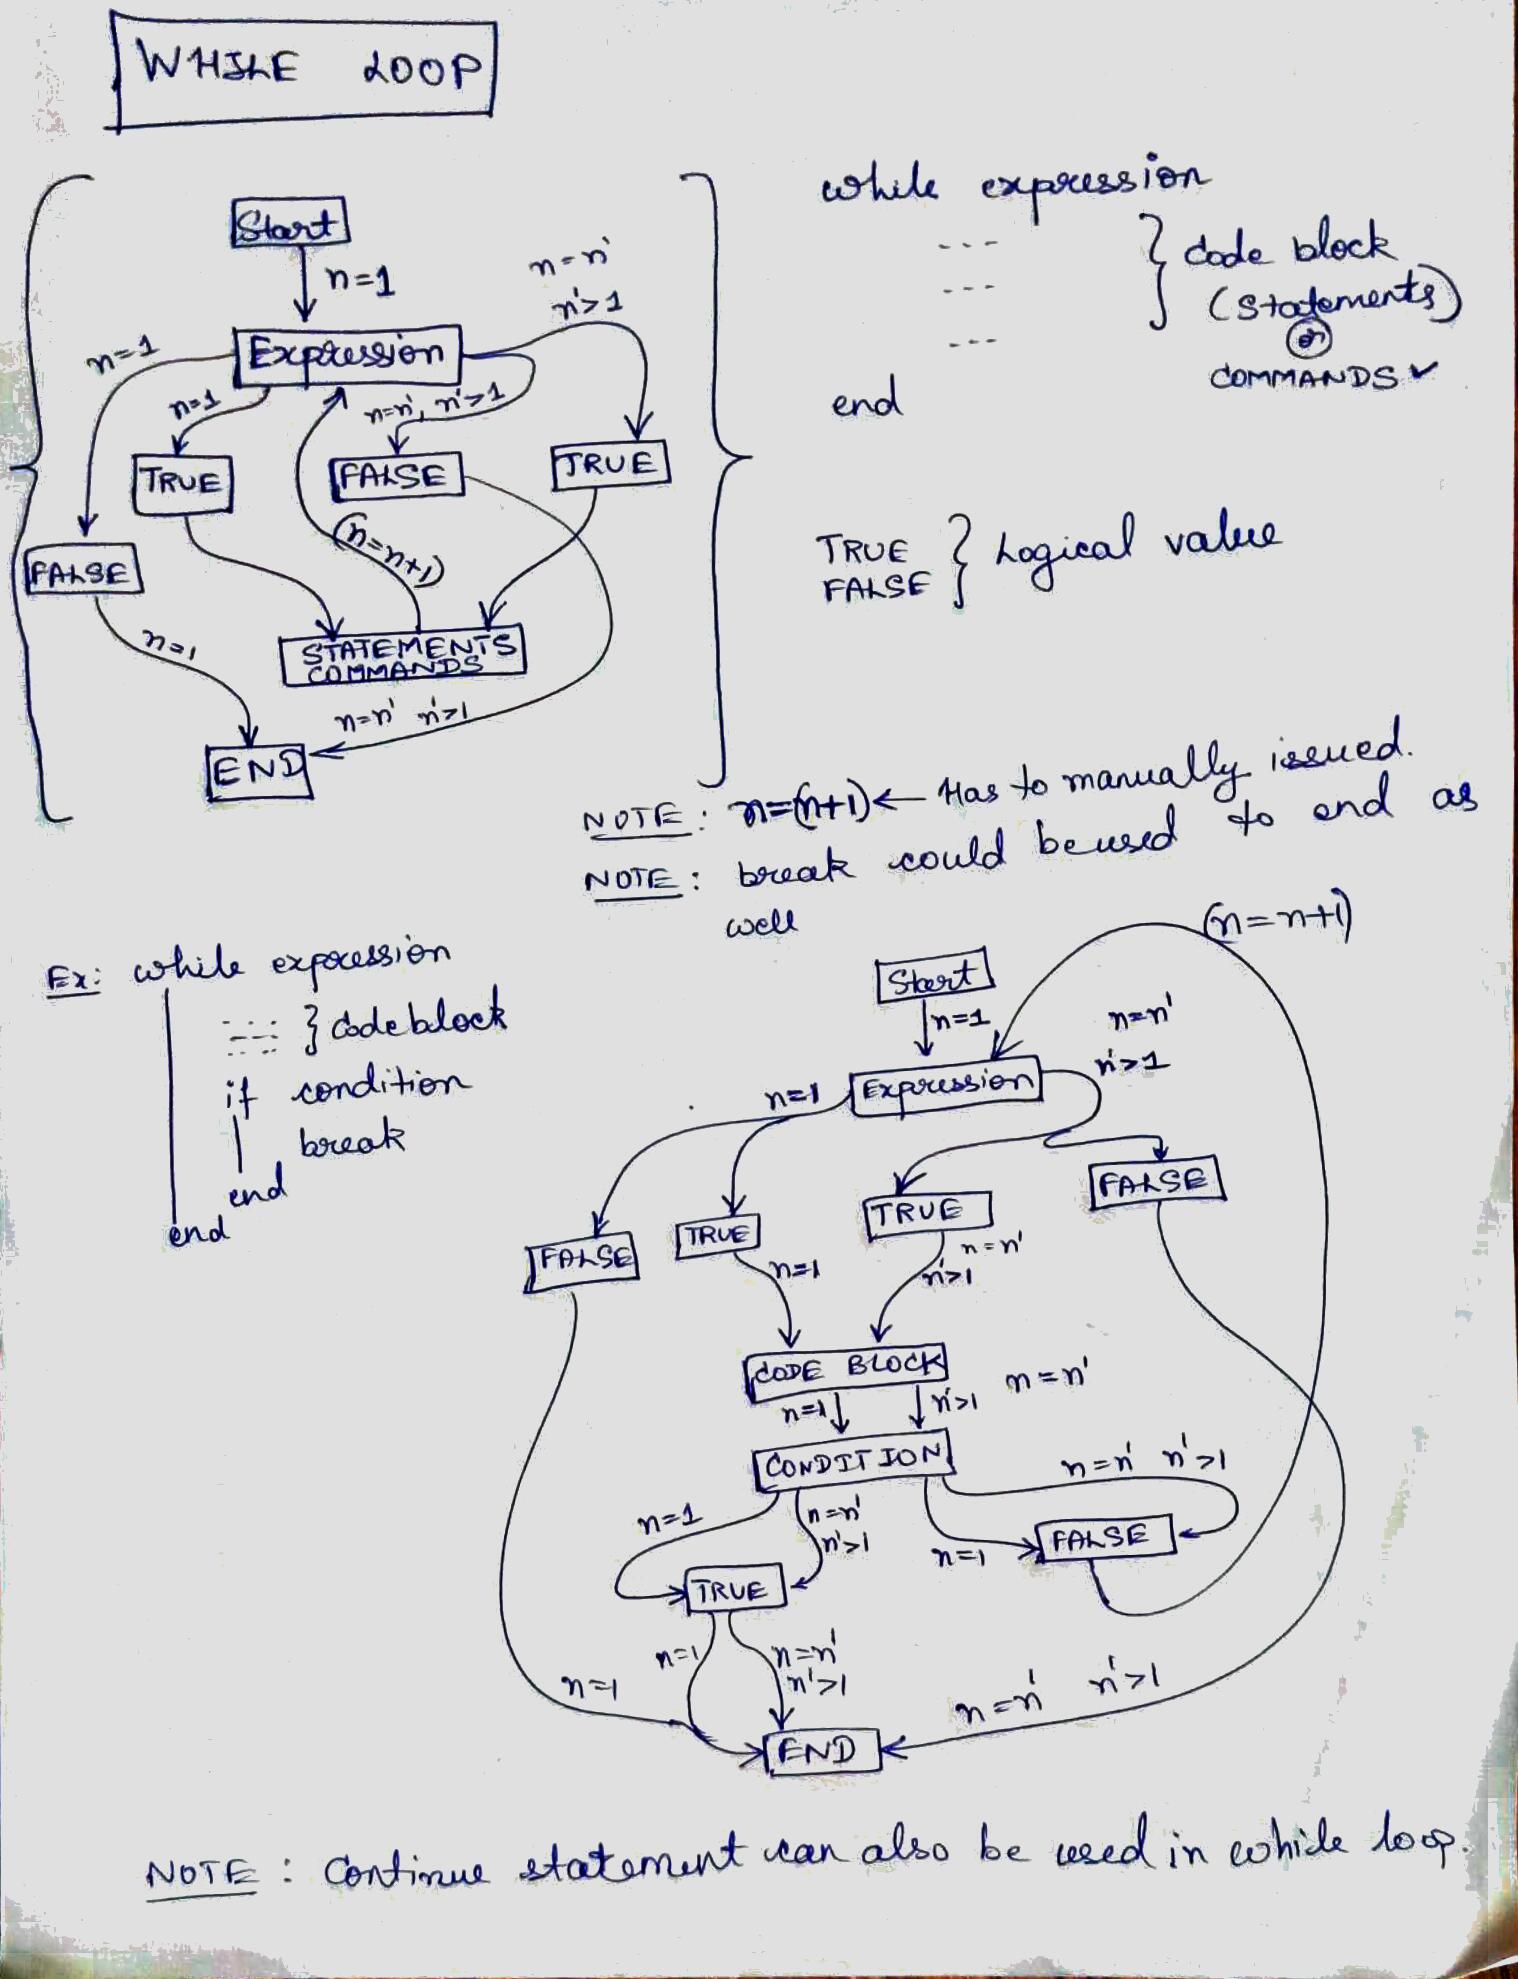 WHILE LOOP
Start
n=1
n=n'
n'>1
Expression
n=1
n=1
n=n', n'>1
TRUE
FALSE
TRUE
(n=n+1)
FALSE
n=1
STATEMENTS
COMMANDS
n=n' n'>1
END
while expression
---
---
---
} Code block
(Statements)
or
COMMANDS ✓
end
TRUE
FALSE } Logical value
NOTE: n=(n+1) ← Has to manually issued.
NOTE: break could be used to end as
well
Ex: while expression
--- } Code block
if condition
break
end
end
(n=n+1)
Start
n=1
n=n'
n'>1
Expression
n=1
FALSE
TRUE
TRUE
FALSE
n=1
n=n'
n'>1
CODE BLOCK
n=1
n'>1
n=n'
CONDITION
n=n' n'>1
n=1
n=n'
n'>1
n=1
FALSE
TRUE
n=1
n=n'
n'>1
n=1
n=n' n'>1
END
NOTE: Continue statement can also be used in while loop.